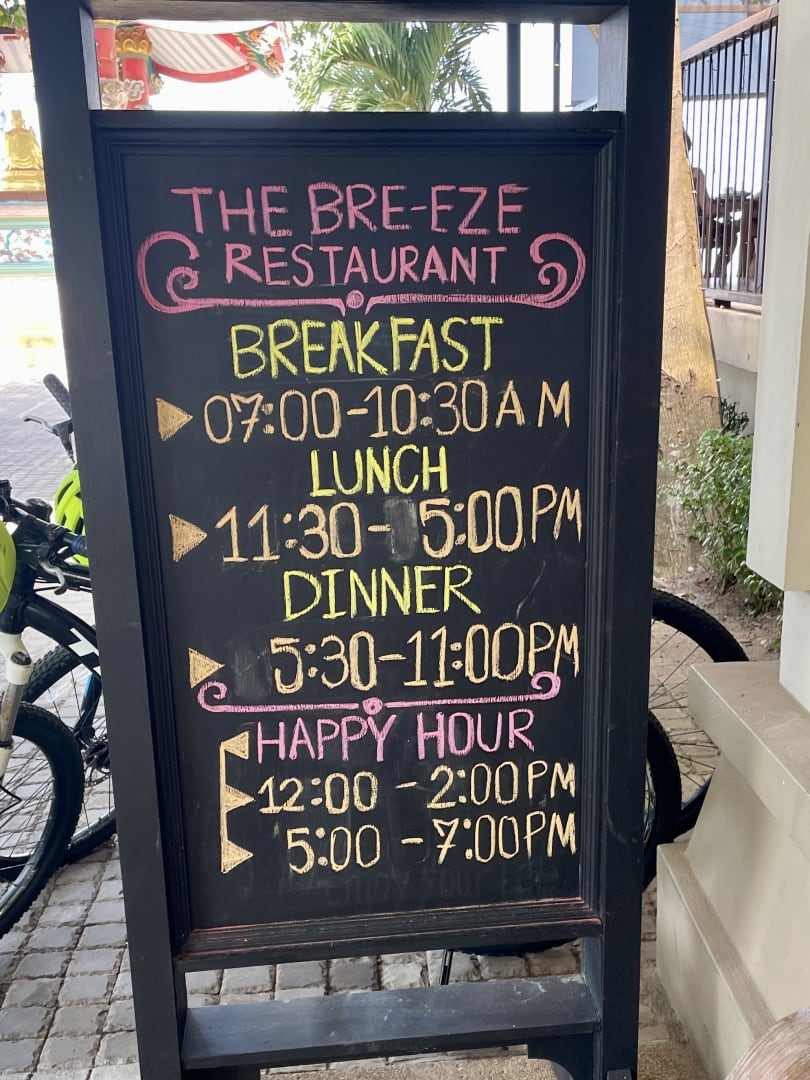 THE BRE-EZE
RESTAURANT
BREAKFAST
07:00-10:30AM
LUNCH
11:30- 5:00PM
DINNER
5:30-11:00PM
HAPPY HOUR
12:00 - 2:00PM
5:00 - 7:00PM